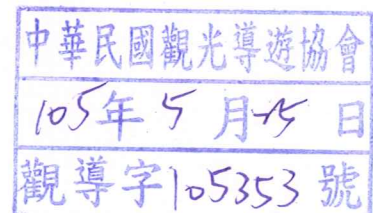 中華民國觀光導遊協會
105年5月15日
觀導字105353號